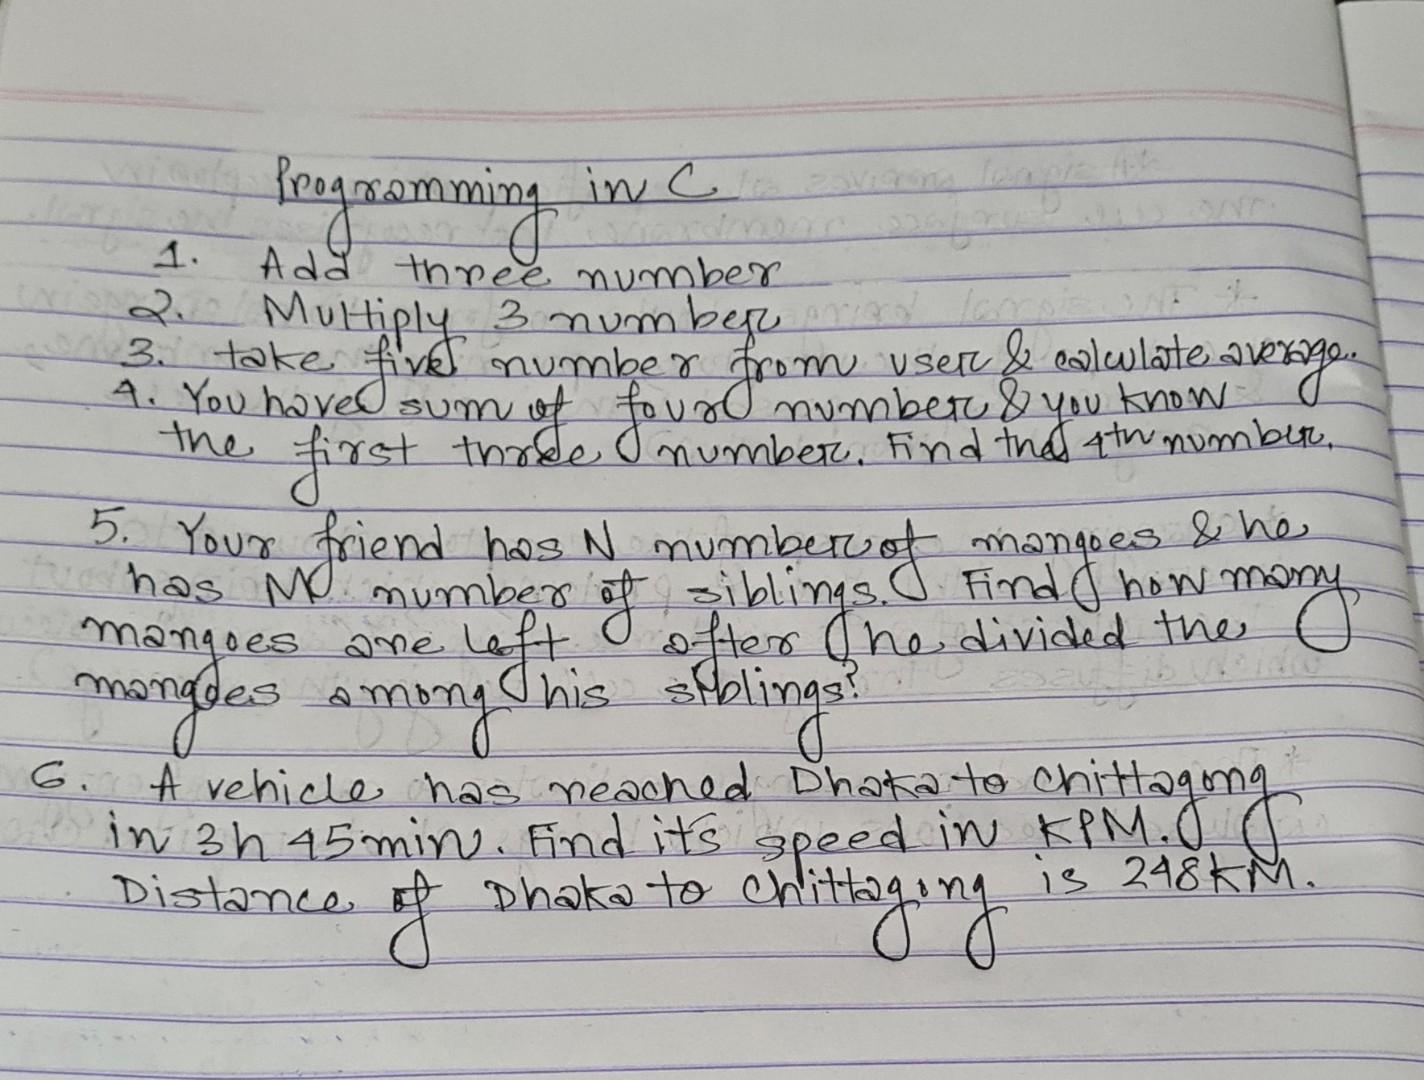 Programming in C
1. Add three number
2. Multiply 3 number
3. take five number from user & calculate average.
4. You have sum of four number & you know
the first three number. Find the 4th number.
5. Your friend has N number of mangoes & he
has M number of siblings. Find how many
mangoes are left after he divided the
mangoes among his siblings?
6. A vehicle has reached Dhaka to Chittagong
in 3h 45min. Find it's speed in KPM.
Distance of Dhaka to Chittagong is 248KM.